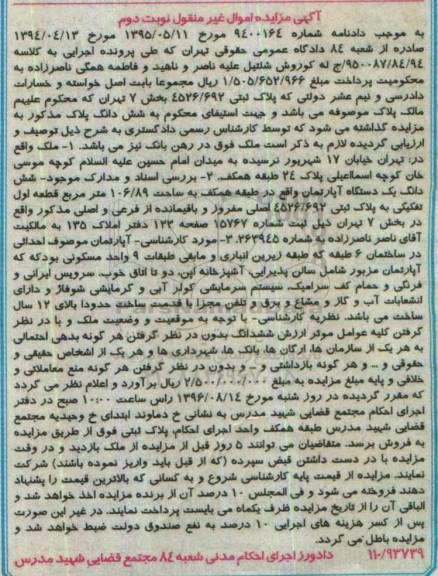 آگهی مزایده اموال غیر منقول نوبت دوم
به موجب دادنامه شماره ۹۴۰۰۱۶۴ مورخ ۱۳۹۵/۰۵/۱۱ مورخ ۱۳۹۴/۰۴/۱۳
صادره از شعبه ۸۴ دادگاه عمومی حقوقی تهران که طی پرونده اجرایی به کلاسه
۹۵۰۰۸۷/۸۴/۹۴ج له کوروش شلتیل علیه ناصر و ناهید و فاطمه همگی ناصرزاده به
محکومیت پرداخت مبلغ ۱/۵۰۵/۶۵۲/۹۶۶ ریال مجموعا بابت اصل خواسته و خسارات
دادرسی و نیم عشر دولتی که پلاک ثبتی ۴۵۲۶/۶۹۲ بخش ۷ تهران که محکوم علیهم
مالک پلاک موصوفه می باشد و جهت استیفای محکوم به شش دانگ پلاک مذکور به
مزایده گذاشته می شود که توسط کارشناس رسمی دادگستری به شرح ذیل توصیف و
ارزیابی گردیده لازم به ذکر است ملک فوق در رهن بانک نیز می باشد. ۱- ملک واقع
در: تهران خیابان ۱۷ شهریور نرسیده به میدان امام حسین علیه السلام کوچه موسی
خان کوچه اسماعیلی پلاک ۲۴ طبقه همکف. ۲- بررسی اسناد و مدارک موجود- شش
دانگ یک دستگاه آپارتمان واقع در طبقه همکف به ساحت ۱۰۶/۸۹ متر مربع قطعه اول
تفکیکی به پلاک ثبتی ۴۵۲۶/۶۹۲ اصلی مفروز و باقیمانده از فرعی و اصلی مذکور واقع
در بخش ۷ تهران ذیل ثبت شماره ۱۵۷۶۷ صفحه ۱۲۳ دفتر املاک ۱۳۵ به مالکیت
آقای ناصر ناصرزاده به شماره ۲۶۳۹۴۵. ۳- مورد کارشناسی- آپارتمان موصوف احداثی
در ساختمان ۶ طبقه که طبقه زیرین انباری و مابقی طبقات ۹ واحد مسکونی بوده که
آپارتمان مزبور شامل سالن پذیرایی، آشپزخانه اپن، دو تا اتاق خوب، سرویس ایرانی و
فرنگی و حمام کف سرامیک، سیستم سرمایشی کولر آبی و گرمایشی شوفاژ و دارای
انشعابات آب و گاز و مشاع و برق و تلفن مجزا با قدمت ساخت حدودا بالای ۱۲ سال
ساخت می باشد. نظریه کارشناسی- با توجه به موقعیت و وضعیت ملک و با در نظر
گرفتن کلیه عوامل موثر ارزش ششدانگ بدون در نظر گرفتن هر گونه بدهی احتمالی
به هر یک از سازمان ها، ارگان ها، بانک ها، شهرداری ها و هر یک از اشخاص حقیقی و
حقوقی و ... و هر گونه بازداشتی و - و بدون در نظر گرفتن هر گونه منع معاملاتی و
خلافی و پایه مبلغ مزایده به مبلغ ۲/۵۰۰/۰۰۰/۰۰۰ ریال برآورد و اعلام نظر می گردد
که مقرر گردیده در روز شنبه مورخ ۱۳۹۶/۰۸/۱۴ راس ساعت ۱۰:۰۰ صبح در دفتر
اجرای احکام مجتمع قضایی شهید مدرس به نشانی خ دماوند ابتدای خ وحیدیه مجتمع
قضایی شهید مدرس طبقه همکف واحد اجرای احکام، پلاک ثبتی فوق از طریق مزایده
به فروش برسد. متقاضیان می توانند ۵ روز قبل از مزایده از ملک بازدید و در وقت
مزایده با در دست داشتن قبض سپرده (که از قبل باید واریز نموده باشند) شرکت
نمایند. مزایده از قیمت پایه کارشناسی شروع و به کسانی که بالاترین قیمت را پشنهاد
دهند فروخته می شود و فی المجلس ۱۰ درصد آن از برنده مزایده اخذ خواهد شد و
الباقی آن را از تاریخ مزایده ظرف یکماه می بایست پرداخت نمایند. در غیر این صورت
پس از کسر هزینه های اجرایی ۱۰ درصد به نفع صندوق دولت ضبط خواهد شد و
مزایده باطل می گردد.
۱۱۰/۹۳۷۳۹ دادورز اجرای احکام مدنی شعبه ۸۴ مجتمع قضایی شهید مدرس